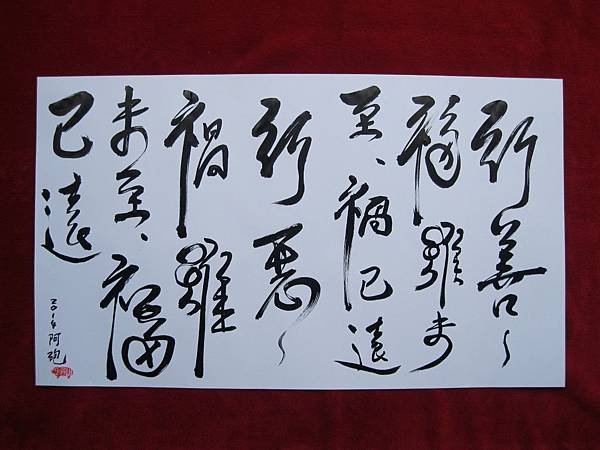 行善、
福雖未
至、禍已遠
行惡、
禍雖
未至、福
已遠
2014阿砲